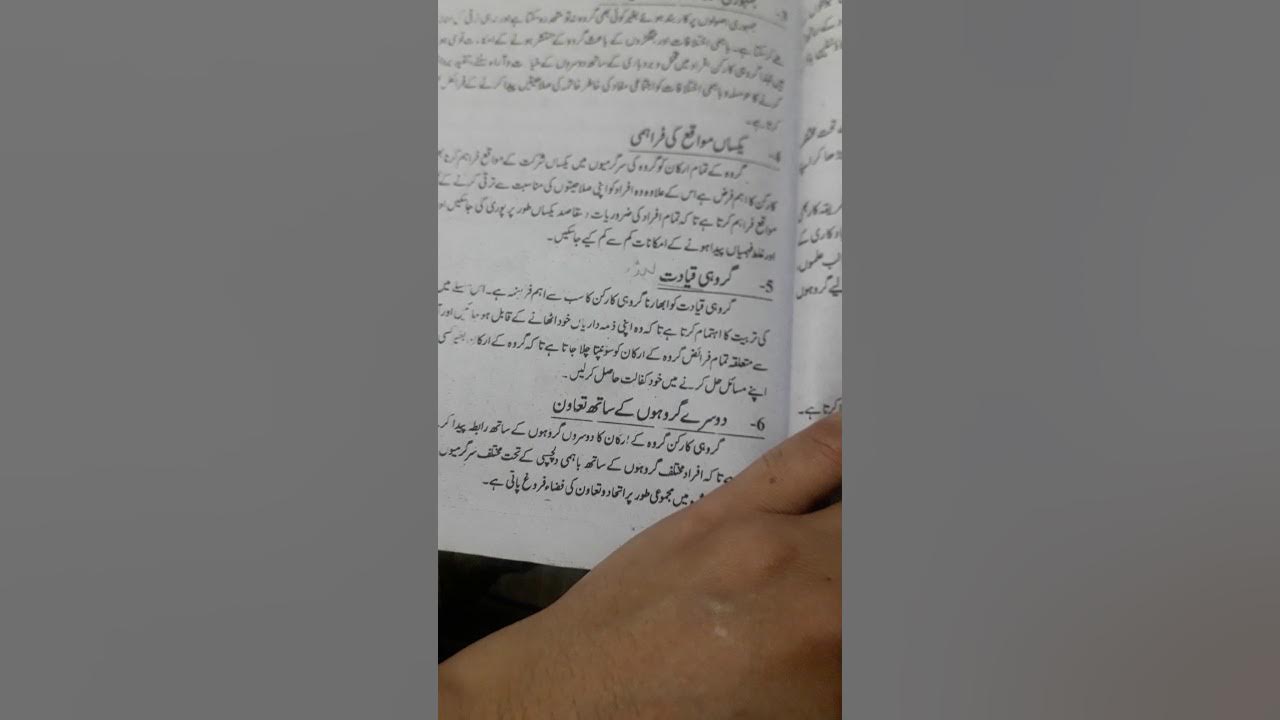 3-
جمہوری اصولوں پر کاربند ہوئے بغیر کوئی بھی گروہ نہ تو متحد رہ سکتا ہے اور نہ ہی ترقی کی
طے کر سکتا ہے۔ باہمی اختلافات اور جھگڑوں کے باعث گروہ کے منتشر ہونے کے امکانات قوی ہو
ہیں لہٰذا گروہی کارکن افراد میں تحمل و بردباری کے ساتھ دوسروں کے خیالات و آراء سننے، تنقید برداشت
کرنے کا حوصلہ و باہمی اختلافات کو اجتماعی مفاد کی خاطر خاتمہ کی صلاحیتیں پیدا کرنے کے فرائض
کرتا ہے۔
4- یکساں مواقع کی فراہمی
گروہ کے تمام ارکان کو گروہ کی سرگرمیوں میں یکساں شرکت کے مواقع فراہم کرنا بھی
کارکن کا اہم فرض ہے اس کے علاوہ وہ افراد کو اپنی صلاحیتوں کی مناسبت سے ترقی کرنے کے
مواقع فراہم کرتا ہے تاکہ تمام افراد کی ضروریات و مقاصد یکساں طور پر پوری کی جاسکیں اور
اور غلط فہمیاں پیدا ہونے کے امکانات کم سے کم کیے جاسکیں۔
5- گروہی قیادت
گروہی قیادت کو ابھارنا گروہی کارکن کا سب سے اہم فریضہ ہے۔ اس سلسلے میں
کی تربیت کا اہتمام کرتا ہے تاکہ وہ اپنی ذمہ داریاں خود اٹھانے کے قابل ہو جائیں اور
سے متعلقہ تمام فرائض گروہ کے ارکان کو سونپتا چلا جاتا ہے تاکہ گروہ کے ارکان بغیر کسی
اپنے مسائل حل کرنے میں خود کفالت حاصل کرلیں۔
6- دوسرے گروہوں کے ساتھ تعاون
گروہی کارکن گروہ کے ارکان کا دوسروں گروہوں کے ساتھ رابطہ پیدا کر
ہے تاکہ افراد مختلف گروہوں کے ساتھ باہمی دلچسپی کے تحت مختلف سرگرمیوں
میں مجموعی طور پر اتحاد و تعاون کی فضاء فروغ پاتی ہے۔